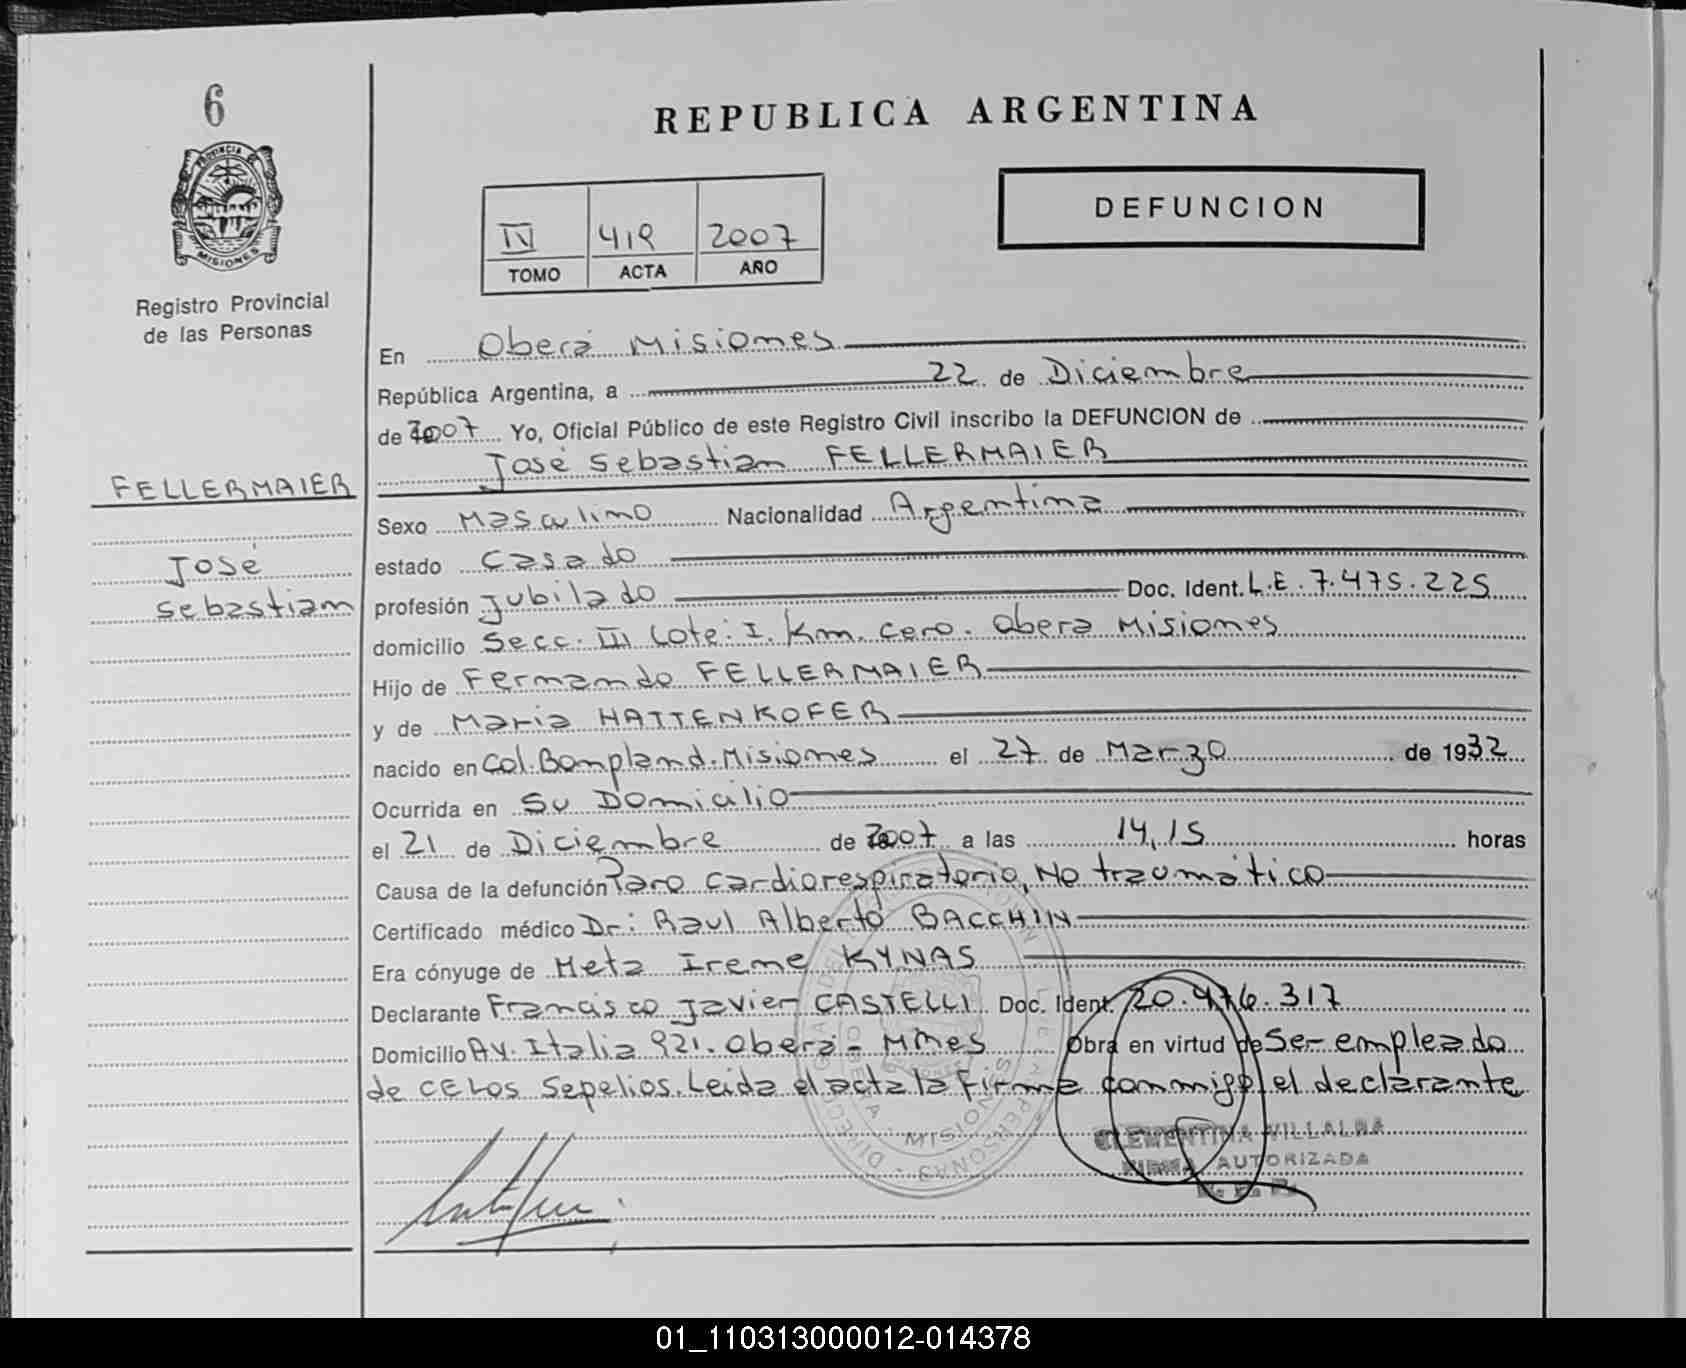 6
PROVINCIA DE
MISIONES
Registro Provincial
de las Personas
FELLERMAIER
José
Sebastian
REPUBLICA ARGENTINA
DEFUNCION
IV 419 2007
TOMO ACTA AÑO
En Oberá Misiones
República Argentina, a 22 de Diciembre
de 2007 Yo, Oficial Público de este Registro Civil inscribo la DEFUNCION de
José Sebastian FELLERMAIER
Sexo Masculino Nacionalidad Argentina
estado Casado
profesión Jubilado Doc. Ident. L.E. 7.475.225
domicilio Secc. III Lote: I. Km. Cero. Obera Misiones
Hijo de Fernando FELLERMAIER
y de Maria HATTENKOFER
nacido en Col. Bompland. Misiones el 27 de Marzo de 1932
Ocurrida en Su Domicilio
el 21 de Diciembre de 2007 a las 14,15 horas
Causa de la defunción Paro cardiorespiratorio, No traumático
Certificado médico Dr: Raul Alberto BACCHIN
Era cónyuge de Meta Irene KYNAS
Declarante Francisco Javier CASTELLI Doc. Ident. 20.476.317
Domicilio Av. Italia 921. Obera - Mnes Obra en virtud de Ser empleado
de CELOS Sepelios. Leida el acta la firma conmigo el declarante
CLEMENTINA VILLALBA
FIRMA AUTORIZADA
01_110313000012-014378